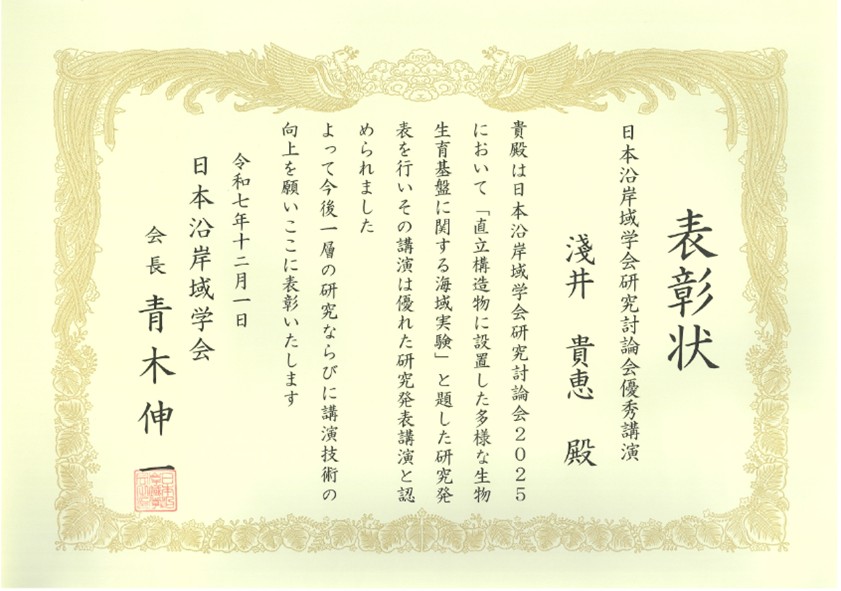 表彰状
日本沿岸域学会研究討論会優秀講演
淺井　貴恵　殿
貴殿は日本沿岸域学会研究討論会２０２５
において「直立構造物に設置した多様な生物
生育基盤に関する海域実験」と題した研究発
表を行いその講演は優れた研究発表講演と認
められました
よって今後一層の研究ならびに講演技術の
向上を願いここに表彰いたします
令和七年十二月一日
日本沿岸域学会
会長　青木伸一